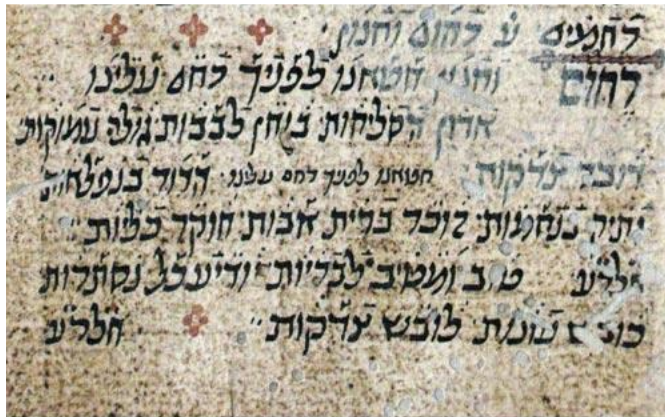 לרחמים ע רחום וחנון:
רחום וחנון חטאנו לפניך רחם עלינו
אדון הסליחות בוחן לבבות גולה עמוקות
דובר צדקות חטאנו לפניך רחם עלינו· הדור בנפלאות
ותיק בנחמות זוכר ברית אבות חוקר כליות
חלר״ע טוב ומטיב לבריות כל נסתרות
כובש עונות לובש צדקות חלר״ע